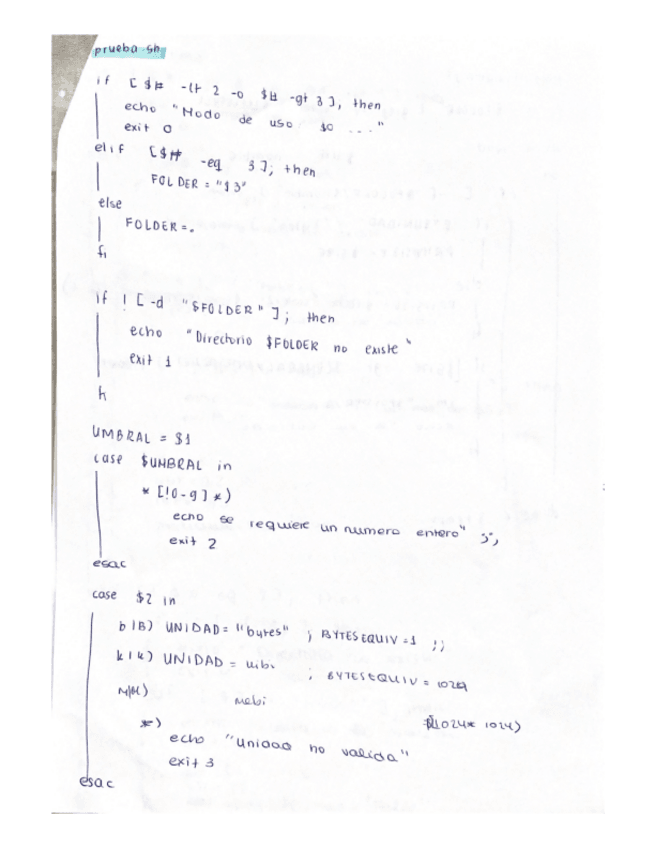 prueba.sh
if [ $# -lt 2 -o $# -gt 3 ], then
echo "Modo de uso: $0 ..."
exit 0
elif [ $# -eq 3 ]; then
FOLDER = "$3"
else
FOLDER = .
fi
if ! [ -d "$FOLDER" ]; then
echo "Directorio $FOLDER no existe"
exit 1
fi
UMBRAL = $1
case $UMBRAL in
*[!0-9]*)
echo se requiere un numero entero" ;;
exit 2
esac
case $2 in
b|B) UNIDAD = "bytes" ; BYTESEQUIV = 1 ;;
k|K) UNIDAD = kibi ; BYTESEQUIV = 1024
M|M) mebi
(1024* 1024)
*)
echo "Unidad no valida"
exit 3
esac